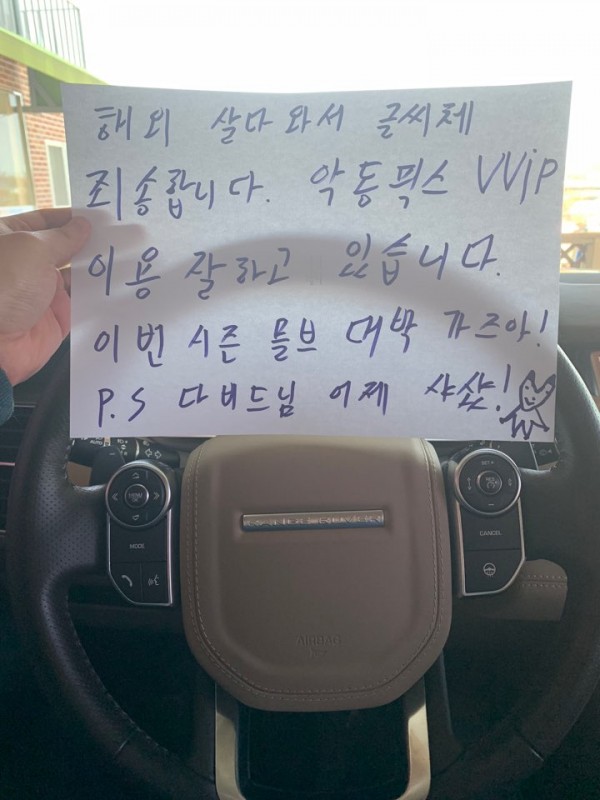 해외 살다 와서 글씨체
죄송합니다. 악동픽스 VVIP
이용 잘하고 있습니다.
이번 시즌 믈브 대박 가즈아!
P.S 다비드님 어제 샤샷!
MENU
MODE
SET+
CANCEL
AIRBAG